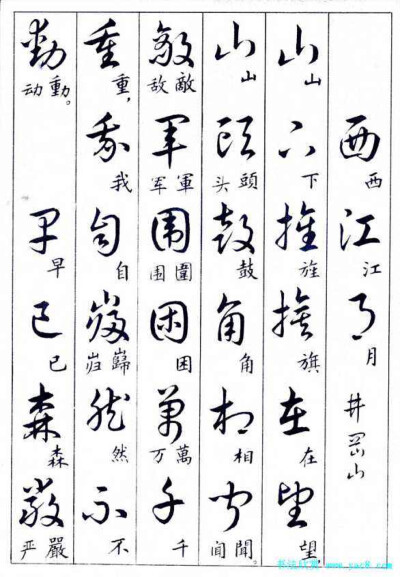 西江月 井岡山
西江月
山下旌旗在望
山下旌旗在望
山頭鼓角相聞
山頭头鼓角相聞闻
敵軍圍困萬千
敵敌軍军圍围困萬万千
重我自巋然不
重，我自巋岿然不
動早已森嚴
動动。早已森嚴严
www.yac8.com